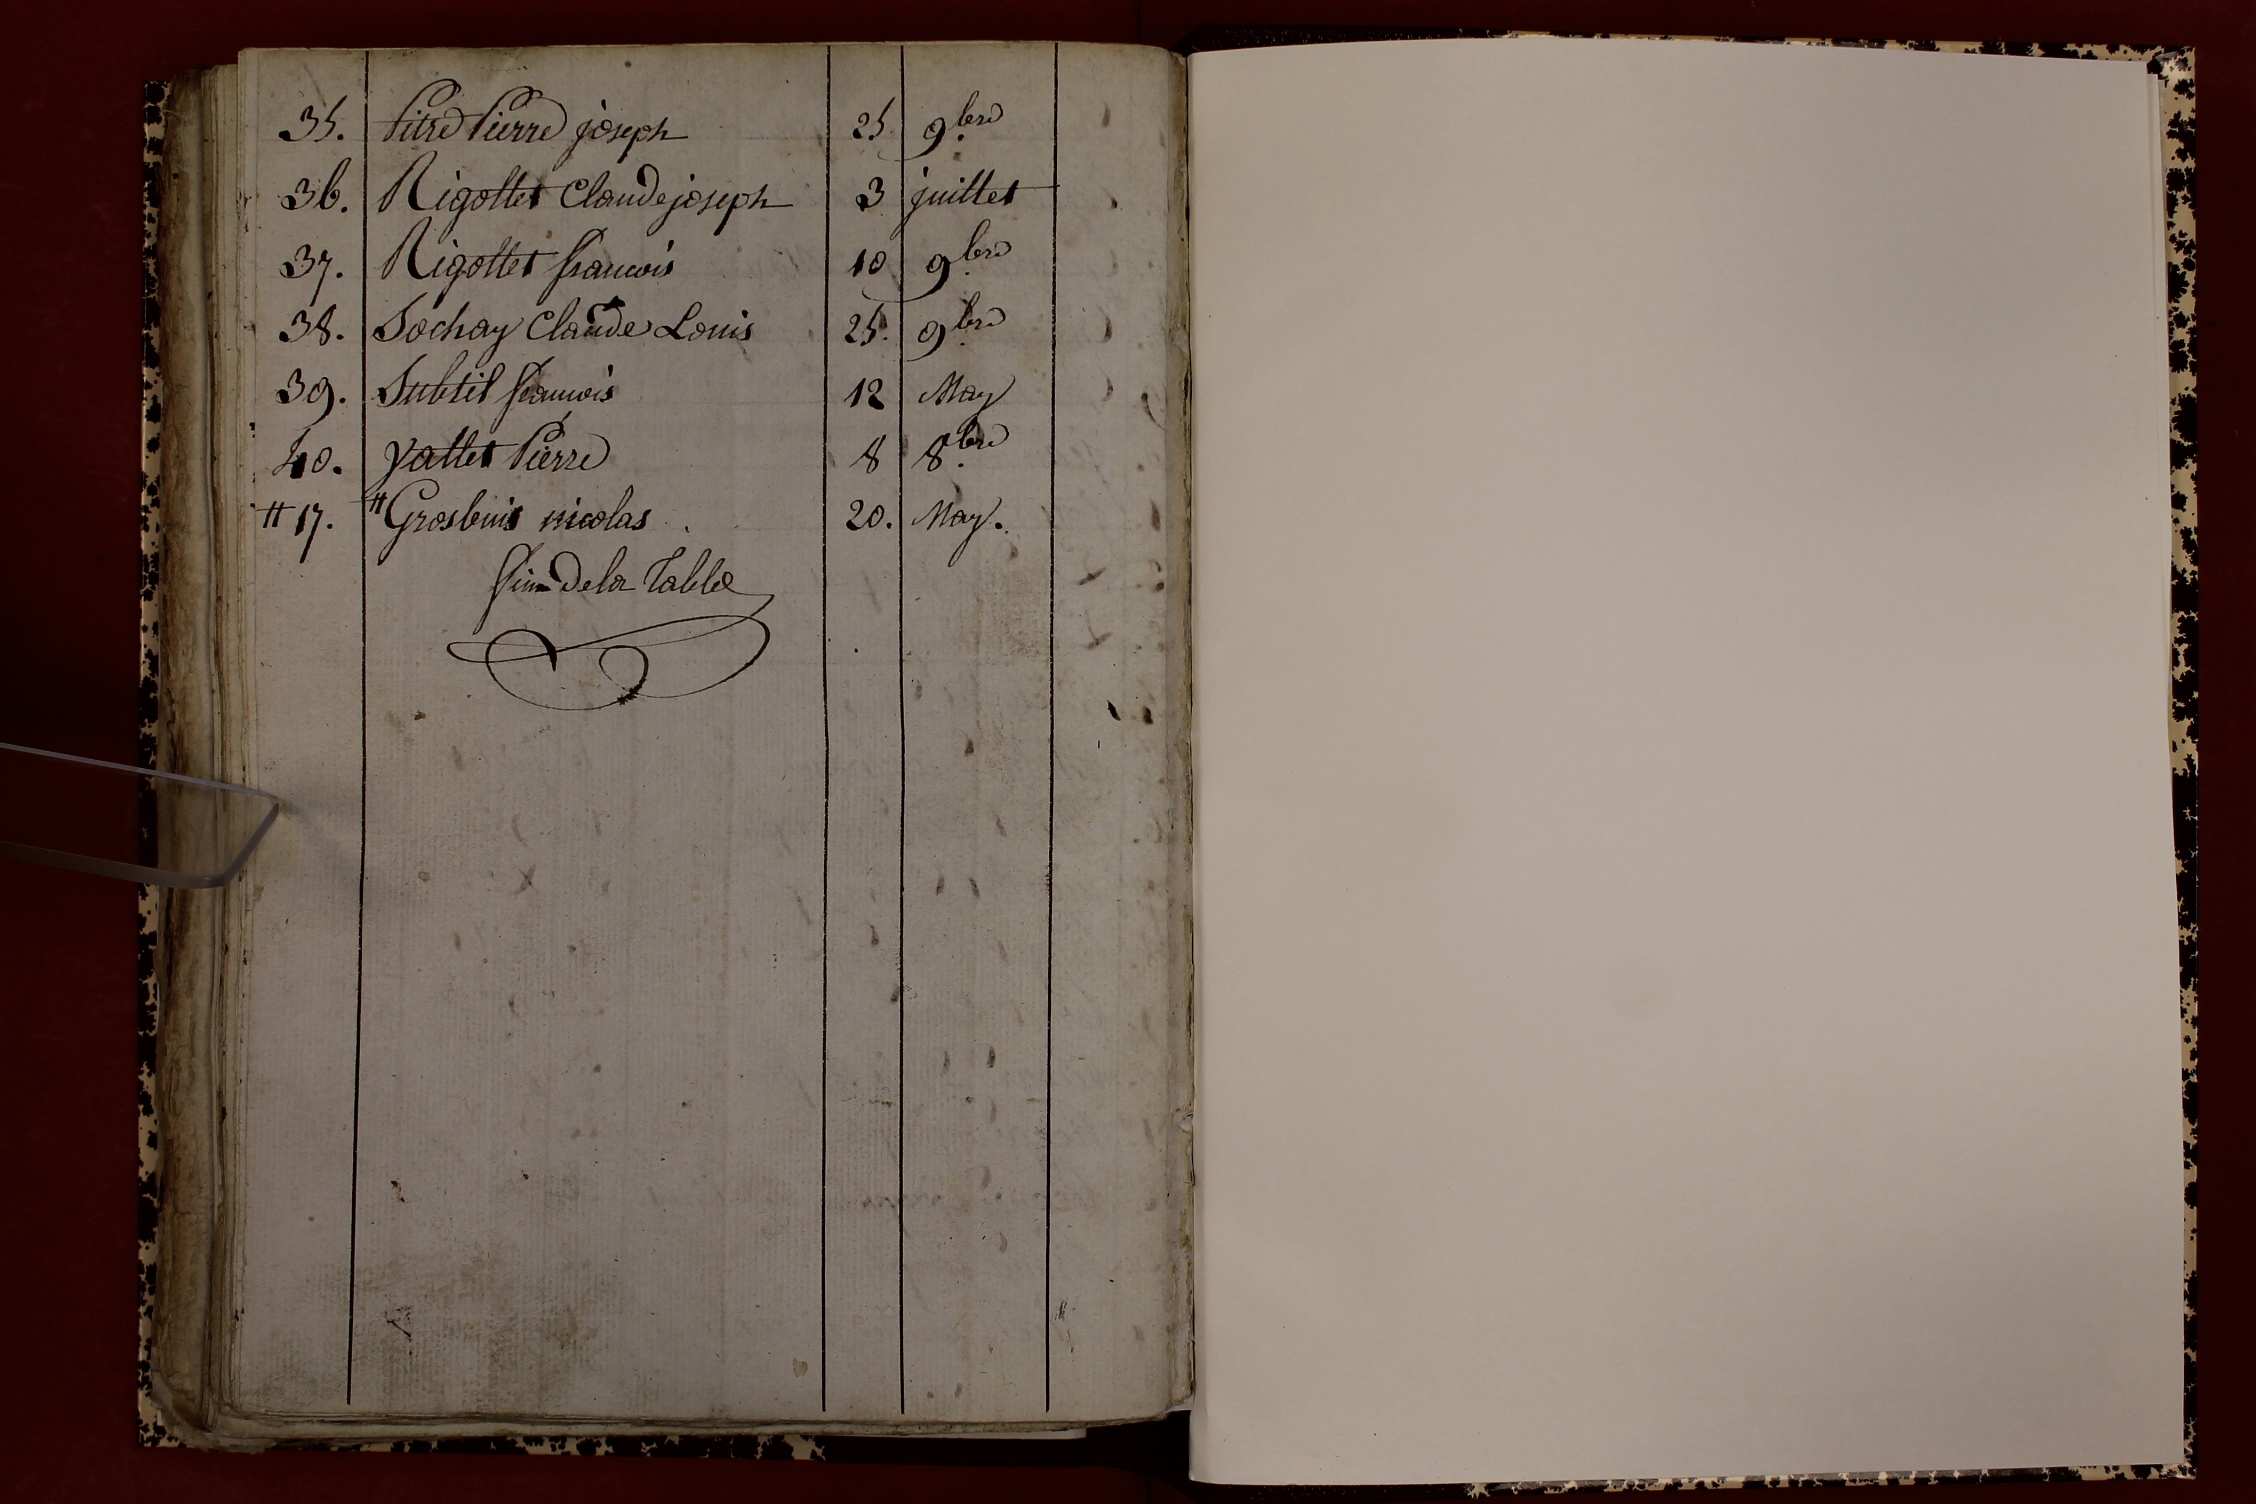 35. Pitre Pierre joseph 25 9bre
36. Rigottet Claude joseph 3 juillet
37. Rigottet francois 10 9bre
38. Sochay Claude Louis 25. 9bre
39. Subtil francois 12 May
40. yattet Pierre 8 8bre
# 17. # Grosbuis nicolas 20. May.
fin De la Table